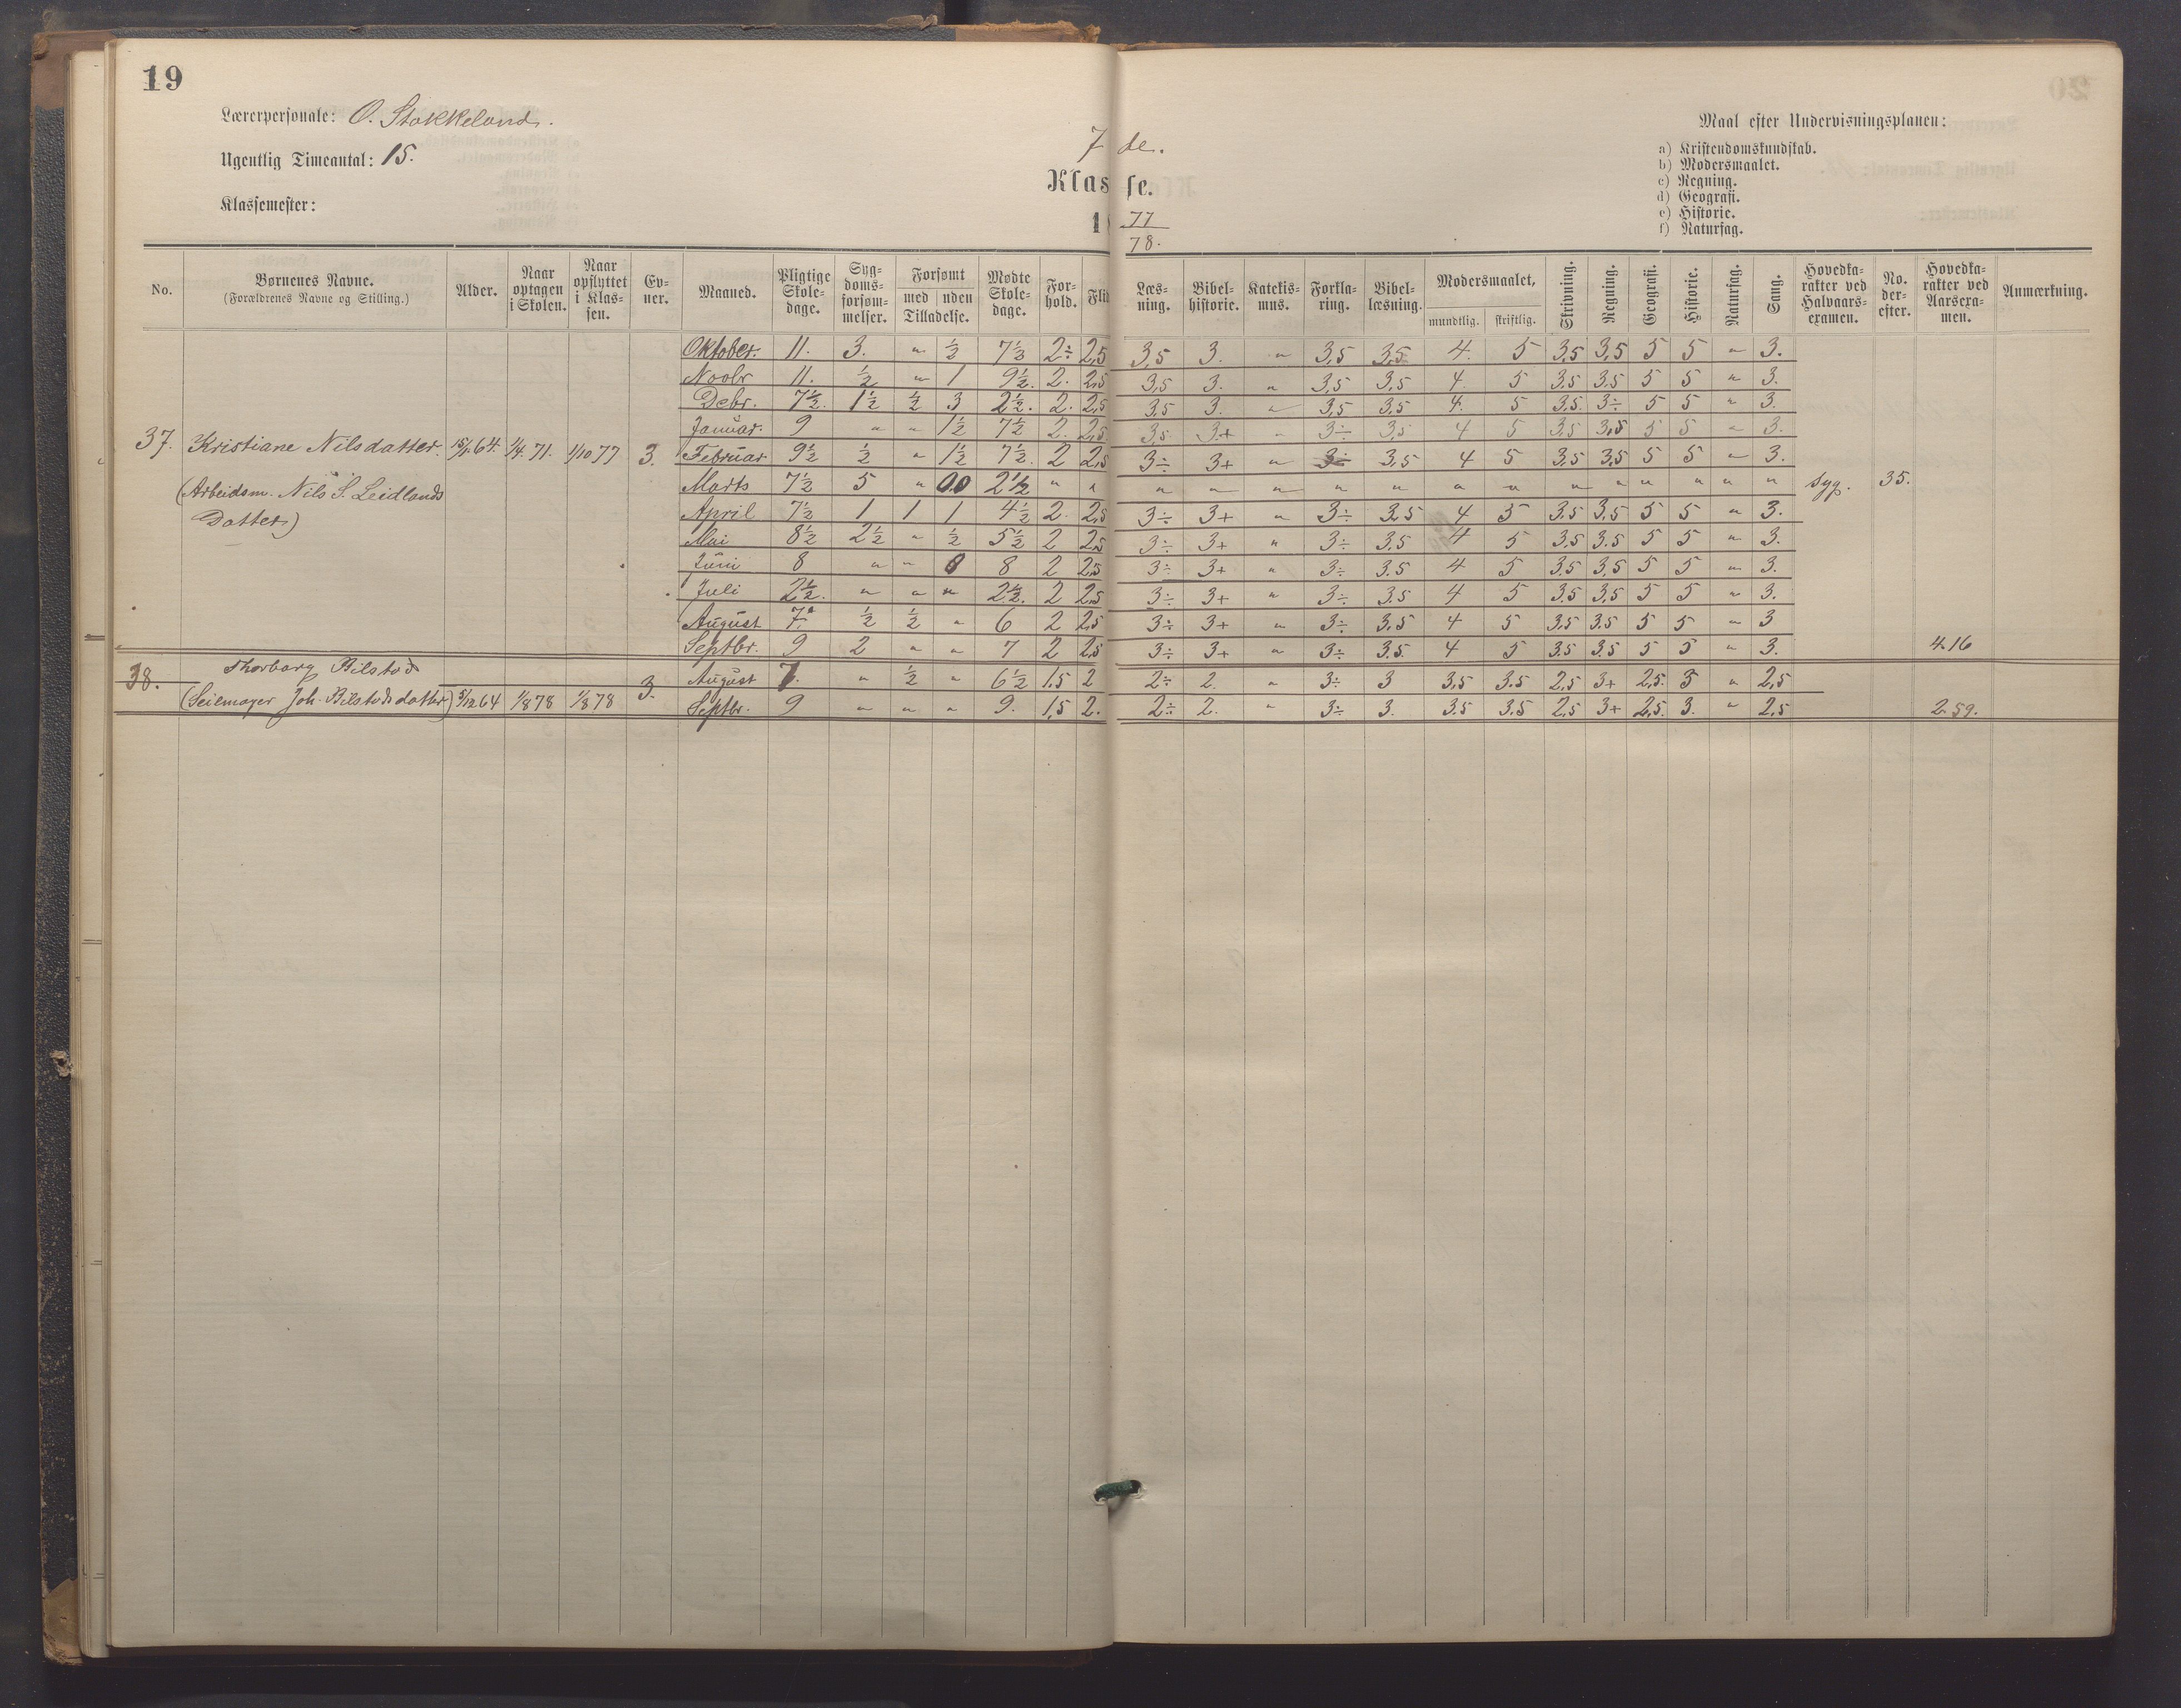 19
Lærerpersonale: O. Stokkeland.
Ugentlig Timeantal: 15.
Klassemester:
7 de.
Klasse.
18 77
78.
Maal efter Undervisningsplanen:
a) Kristendomskundskab.
b) Modersmaalet.
c) Regning.
d) Geografi.
e) Historie.
f) Naturfag.
No. Børnenes Navne. (Forældrenes Navne og Stilling.) Alder. Naar optagen i Skolen. Naar opflyttet i Klassen. Evner. Maaned. Pligtige Skoledage. Sygdomsforsømmelser. Forsømt med uden Tilladelse. Mødte Skoledage. Forhold. Flid Læsning. Bibelhistorie. Katekismus. Forklaring. Bibellæsning. Modersmaalet, mundtlig. skriftlig. Skrivning. Regning. Geografi. Historie. Naturfag. Sang. Hovedkarakter ved Halvaarsexamen. No. derefter. Hovedkarakter ved Aarsexamen. Anmærkning.
Oktober. 11. 3. " ½ 7½ 2÷ 2,5 3,5 3. " 3,5 3,5 4. 5 3,5 3,5 5 5 " 3.
Novbr 11. ½ " 1 9½. 2. 2,5 3,5 3. " 3,5 3,5 4. 5 3,5 3.5 5 5 " 3.
Debr. 7½. 1½ ½ 3 2½. 2. 2,5 3,5 3. " 3,5 3,5 4. 5 3,5. 3÷ 5 5 " 3.
Januar. 9 " " 1½ 7½ 2. 2,5 3,5 3+ " 3÷ 3,5 4 5 3,5 3,5 5 5 " 3.
37. Kristiane Nilsdatter. 15/1.64. 1/4.71. 1/10 77 3. Februar 9½ ½ " 1½ 7½. 2 2,5 3÷ 3+ " 3÷ 3,5 4 5 3,5 3,5 5 5 " 3.
(Arbeidsm. Nils S. Leidlands Marts 7½ 5 " 0.0 2½ " " " " " " " " " " " " " " " syg. 35.
Datter) April 7½ 1 1 1 4½ 2. 2,5 3÷ 3+ " 3÷ 3.5 4 5 3.5 3,5 5 5 " 3.
Mai 8½ 2½ " ½ 5½ 2 2,5 3÷ 3+ " 3÷ 3,5 4 5 3,5 3.5 5 5 " 3.
Juni 8 " " 0 8 2 2,5 3÷ 3+ " 3÷ 3.5 4 5 3,5 3,5 5 5 " 3.
Juli 2½. " " " 2½. 2 2,5 3÷ 3+ " 3÷ 3.5 4 5 3.5 3,5 5 5 " 3.
August 7. ½ ½ " 6 2 2,5 3÷ 3+ " 3÷ 3,5 4 5 3,5 3.5 5 5 " 3
Septbr. 9 2 " " 7 2 2,5 3÷ 3+ " 3÷ 3.5. 4 5 3.5 3.5 5 5 " 3. 4.16
38. Thorborg Bilstod 3. August 7. " ½ " 6½ 1,5 2 2÷ 2. " 3÷ 3 3,5 3.5 2,5 3+ 2,5. 3 " 2,5
(Seilmager Joh. Bilstods datter) 5/12 64 1/8 78 1/8 78 Septbr. 9 " " " 9. 1,5 2. 2÷ 2. " 3÷ 3. 3.5 3.5 2,5 3+ 2,5. 3. " 2,5 2.59.